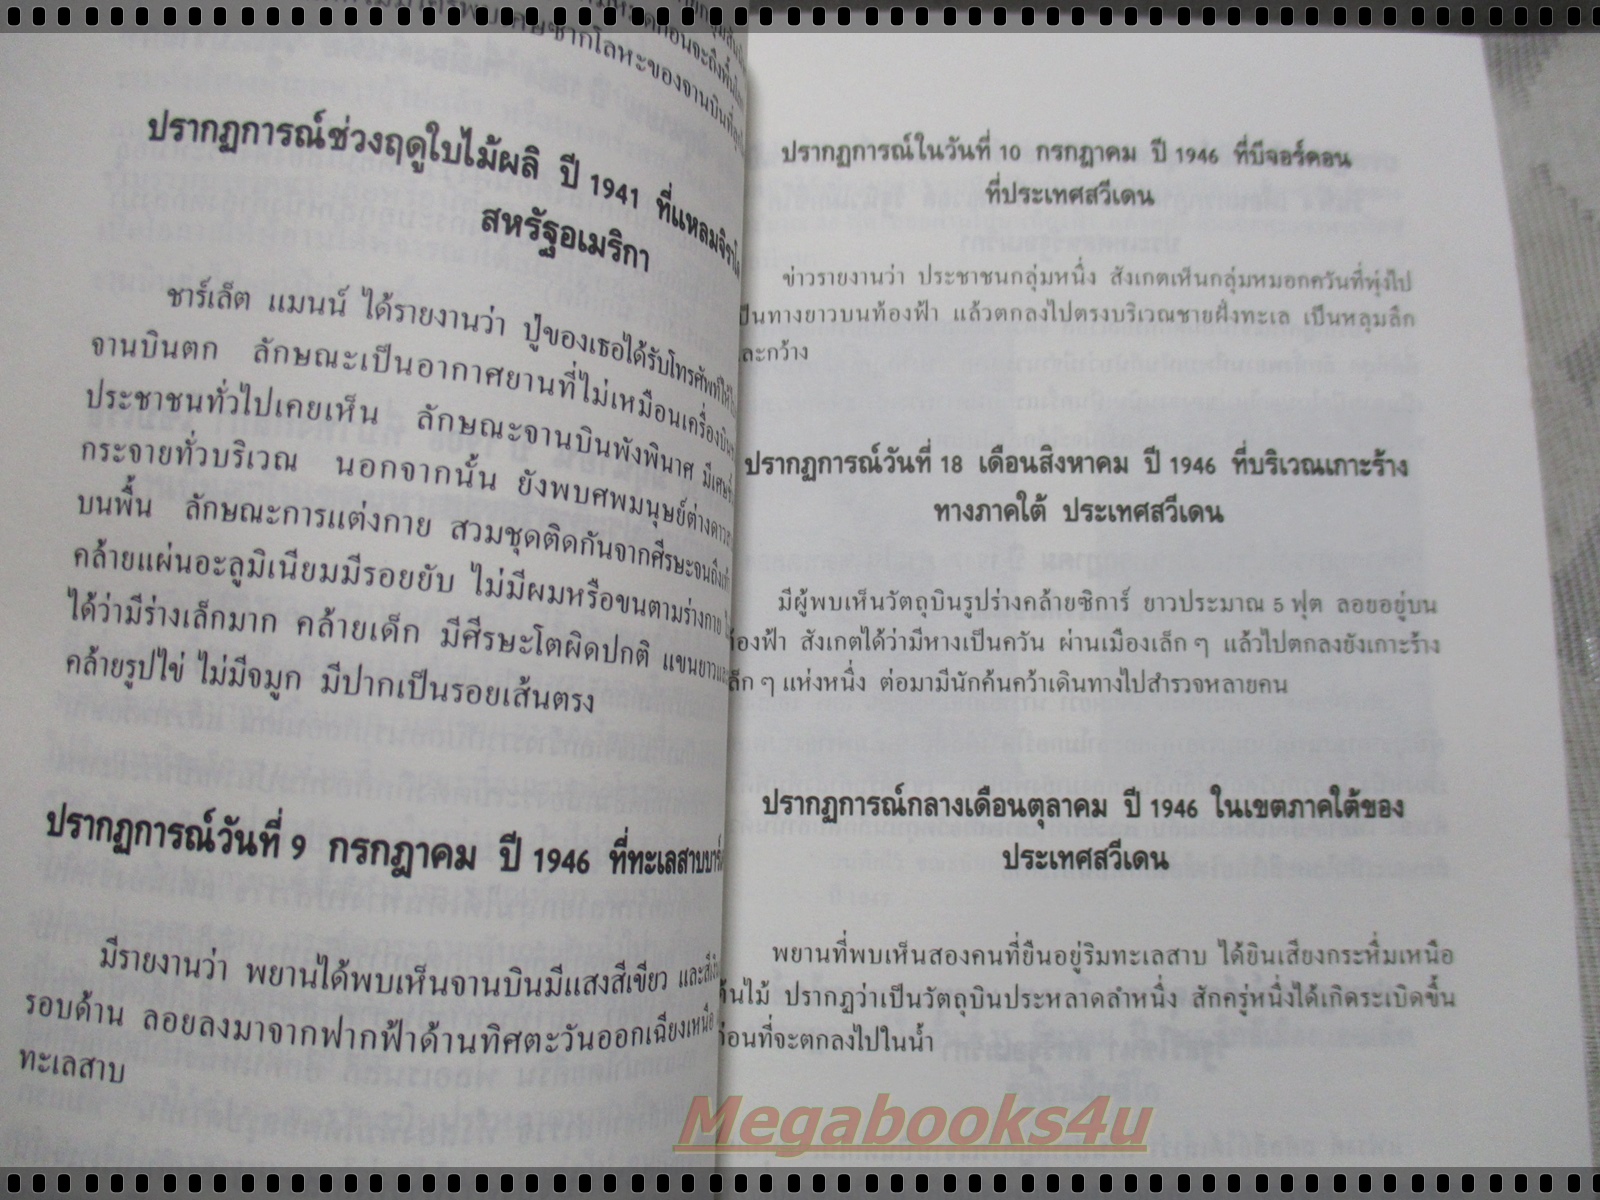 เศษซากโลหะของจานบินที่
ปรากฏการณ์ช่วงฤดูใบไม้ผลิ ปี 1941 ที่แหลมจิราโด
สหรัฐอเมริกา
ชาร์เล็ต แมนน์ ได้รายงานว่า ปู่ของเธอได้รับโทรศัพท์ให้ไป
จานบินตก ลักษณะเป็นอากาศยานที่ไม่เหมือนเครื่องบิน
ประชาชนทั่วไปเคยเห็น ลักษณะจานบินพังพินาศ มีเศษ
กระจายทั่วบริเวณ นอกจากนั้น ยังพบศพมนุษย์ต่างดาว
บนพื้น ลักษณะการแต่งกาย สวมชุดติดกันจากศีรษะจนถึง
คล้ายแผ่นอะลูมิเนียมมีรอยยับ ไม่มีผมหรือขนตามร่างกาย
ได้ว่ามีร่างเล็กมาก คล้ายเด็ก มีศีรษะโตผิดปกติ แขนยาว
คล้ายรูปไข่ ไม่มีจมูก มีปากเป็นรอยเส้นตรง
ปรากฏการณ์วันที่ 9 กรกฎาคม ปี 1946 ที่ทะเลสาบ
มีรายงานว่า พยานได้พบเห็นจานบินมีแสงสีเขียว และ
รอบด้าน ลอยลงมาจากฟากฟ้าด้านทิศตะวันออกเฉียงเหนือ
ทะเลสาบ
ปรากฏการณ์ในวันที่ 10 กรกฎาคม ปี 1946 ที่บีจอร์คอน
ที่ประเทศสวีเดน
ข่าวรายงานว่า ประชาชนกลุ่มหนึ่ง สังเกตเห็นกลุ่มหมอกควันที่พุ่งไป
เป็นทางยาวบนท้องฟ้า แล้วตกลงไปตรงบริเวณชายฝั่งทะเล เป็นหลุมลึก
และกว้าง
ปรากฏการณ์วันที่ 18 เดือนสิงหาคม ปี 1946 ที่บริเวณเกาะร้าง
ทางภาคใต้ ประเทศสวีเดน
มีผู้พบเห็นวัตถุบินรูปร่างคล้ายซิการ์ ยาวประมาณ 5 ฟุต ลอยอยู่บน
ท้องฟ้า สังเกตได้ว่ามีหางเป็นควัน ผ่านเมืองเล็ก ๆ แล้วไปตกลงยังเกาะร้าง
เล็ก ๆ แห่งหนึ่ง ต่อมามีนักค้นคว้าเดินทางไปสำรวจหลายคน
ปรากฏการณ์กลางเดือนตุลาคม ปี 1946 ในเขตภาคใต้ของ
ประเทศสวีเดน
พยานที่พบเห็นสองคนที่ยืนอยู่ริมทะเลสาบ ได้ยินเสียงกระหึ่มเหนือ
ต้นไม้ ปรากฏว่าเป็นวัตถุบินประหลาดลำหนึ่ง สักครู่หนึ่งได้เกิดระเบิดขึ้น
ก่อนที่จะตกลงไปในน้ำ
Megabooks4u